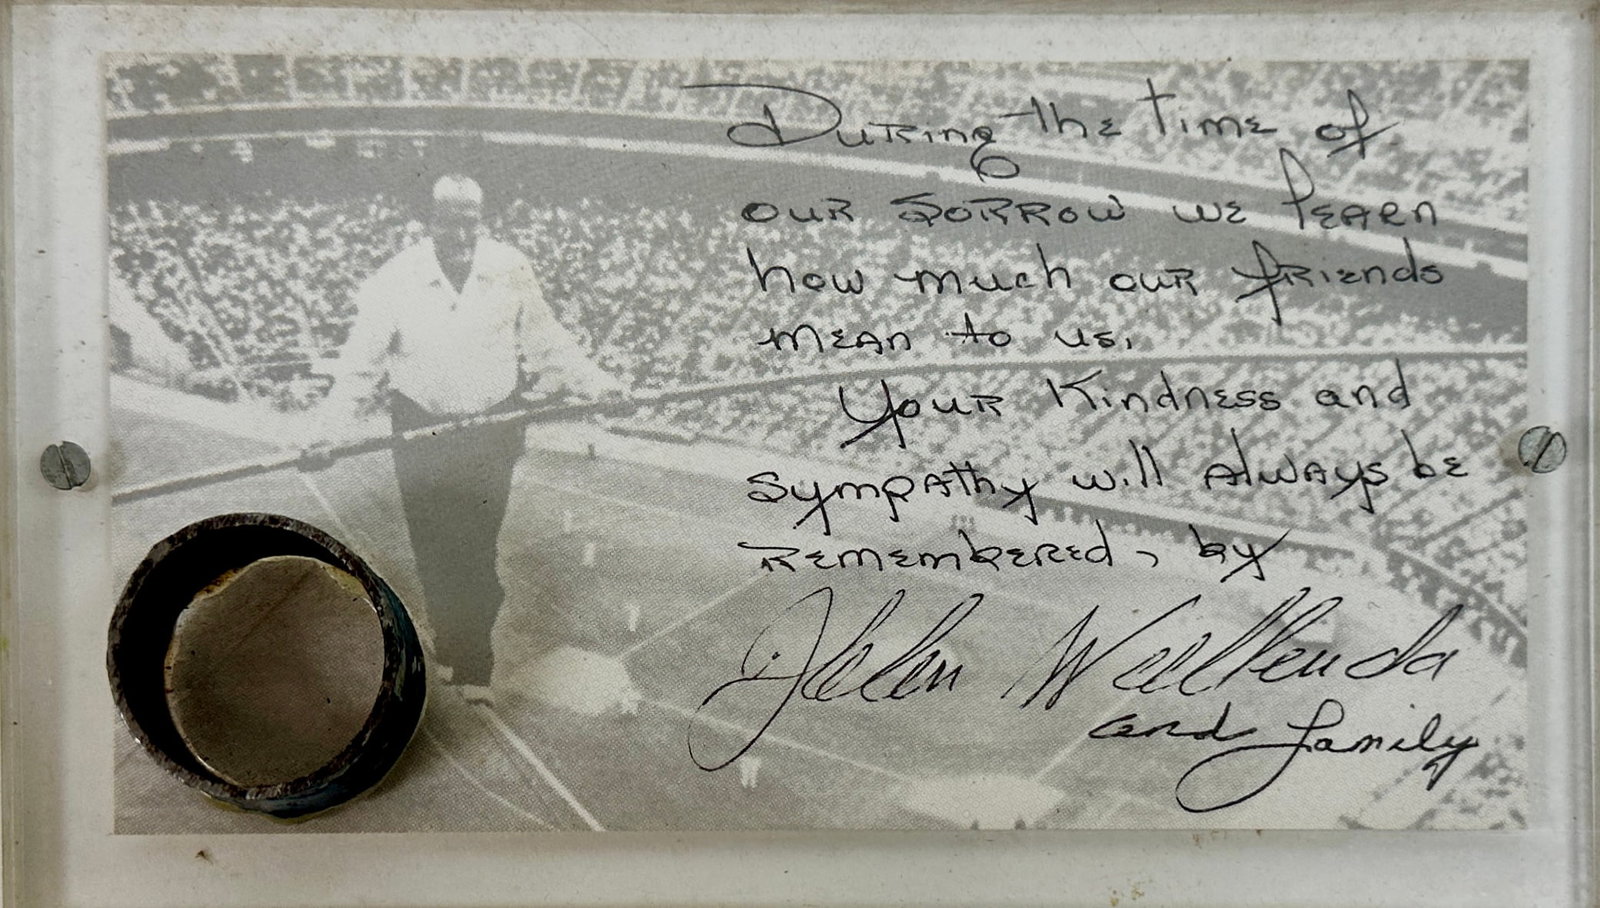 During the time of
our sorrow we learn
how much our friends
mean to us.
Your kindness and
sympathy will always be
remembered, by
Helen Wallenda
and family